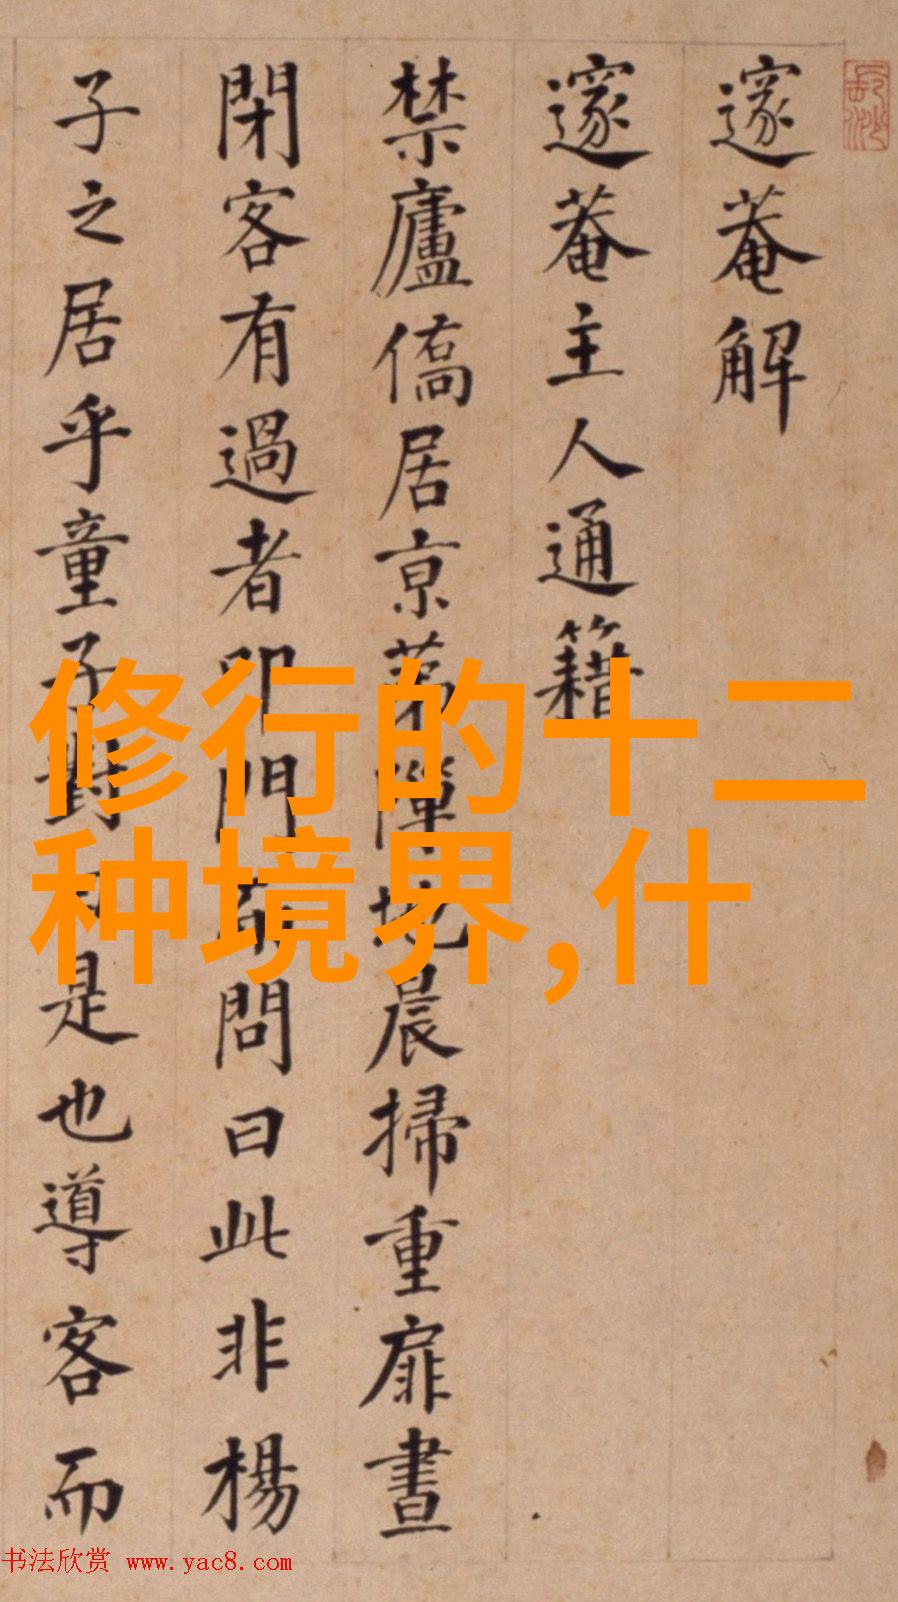 邃菴解
邃菴主人通籍
禁廬僑居京第闡地晨掃重扉晝
閉客有過者叩門而問曰此非楊
子之居乎童子對曰是也導客而
修行的十二
种境界,什
书法欣赏 www.yac8.com